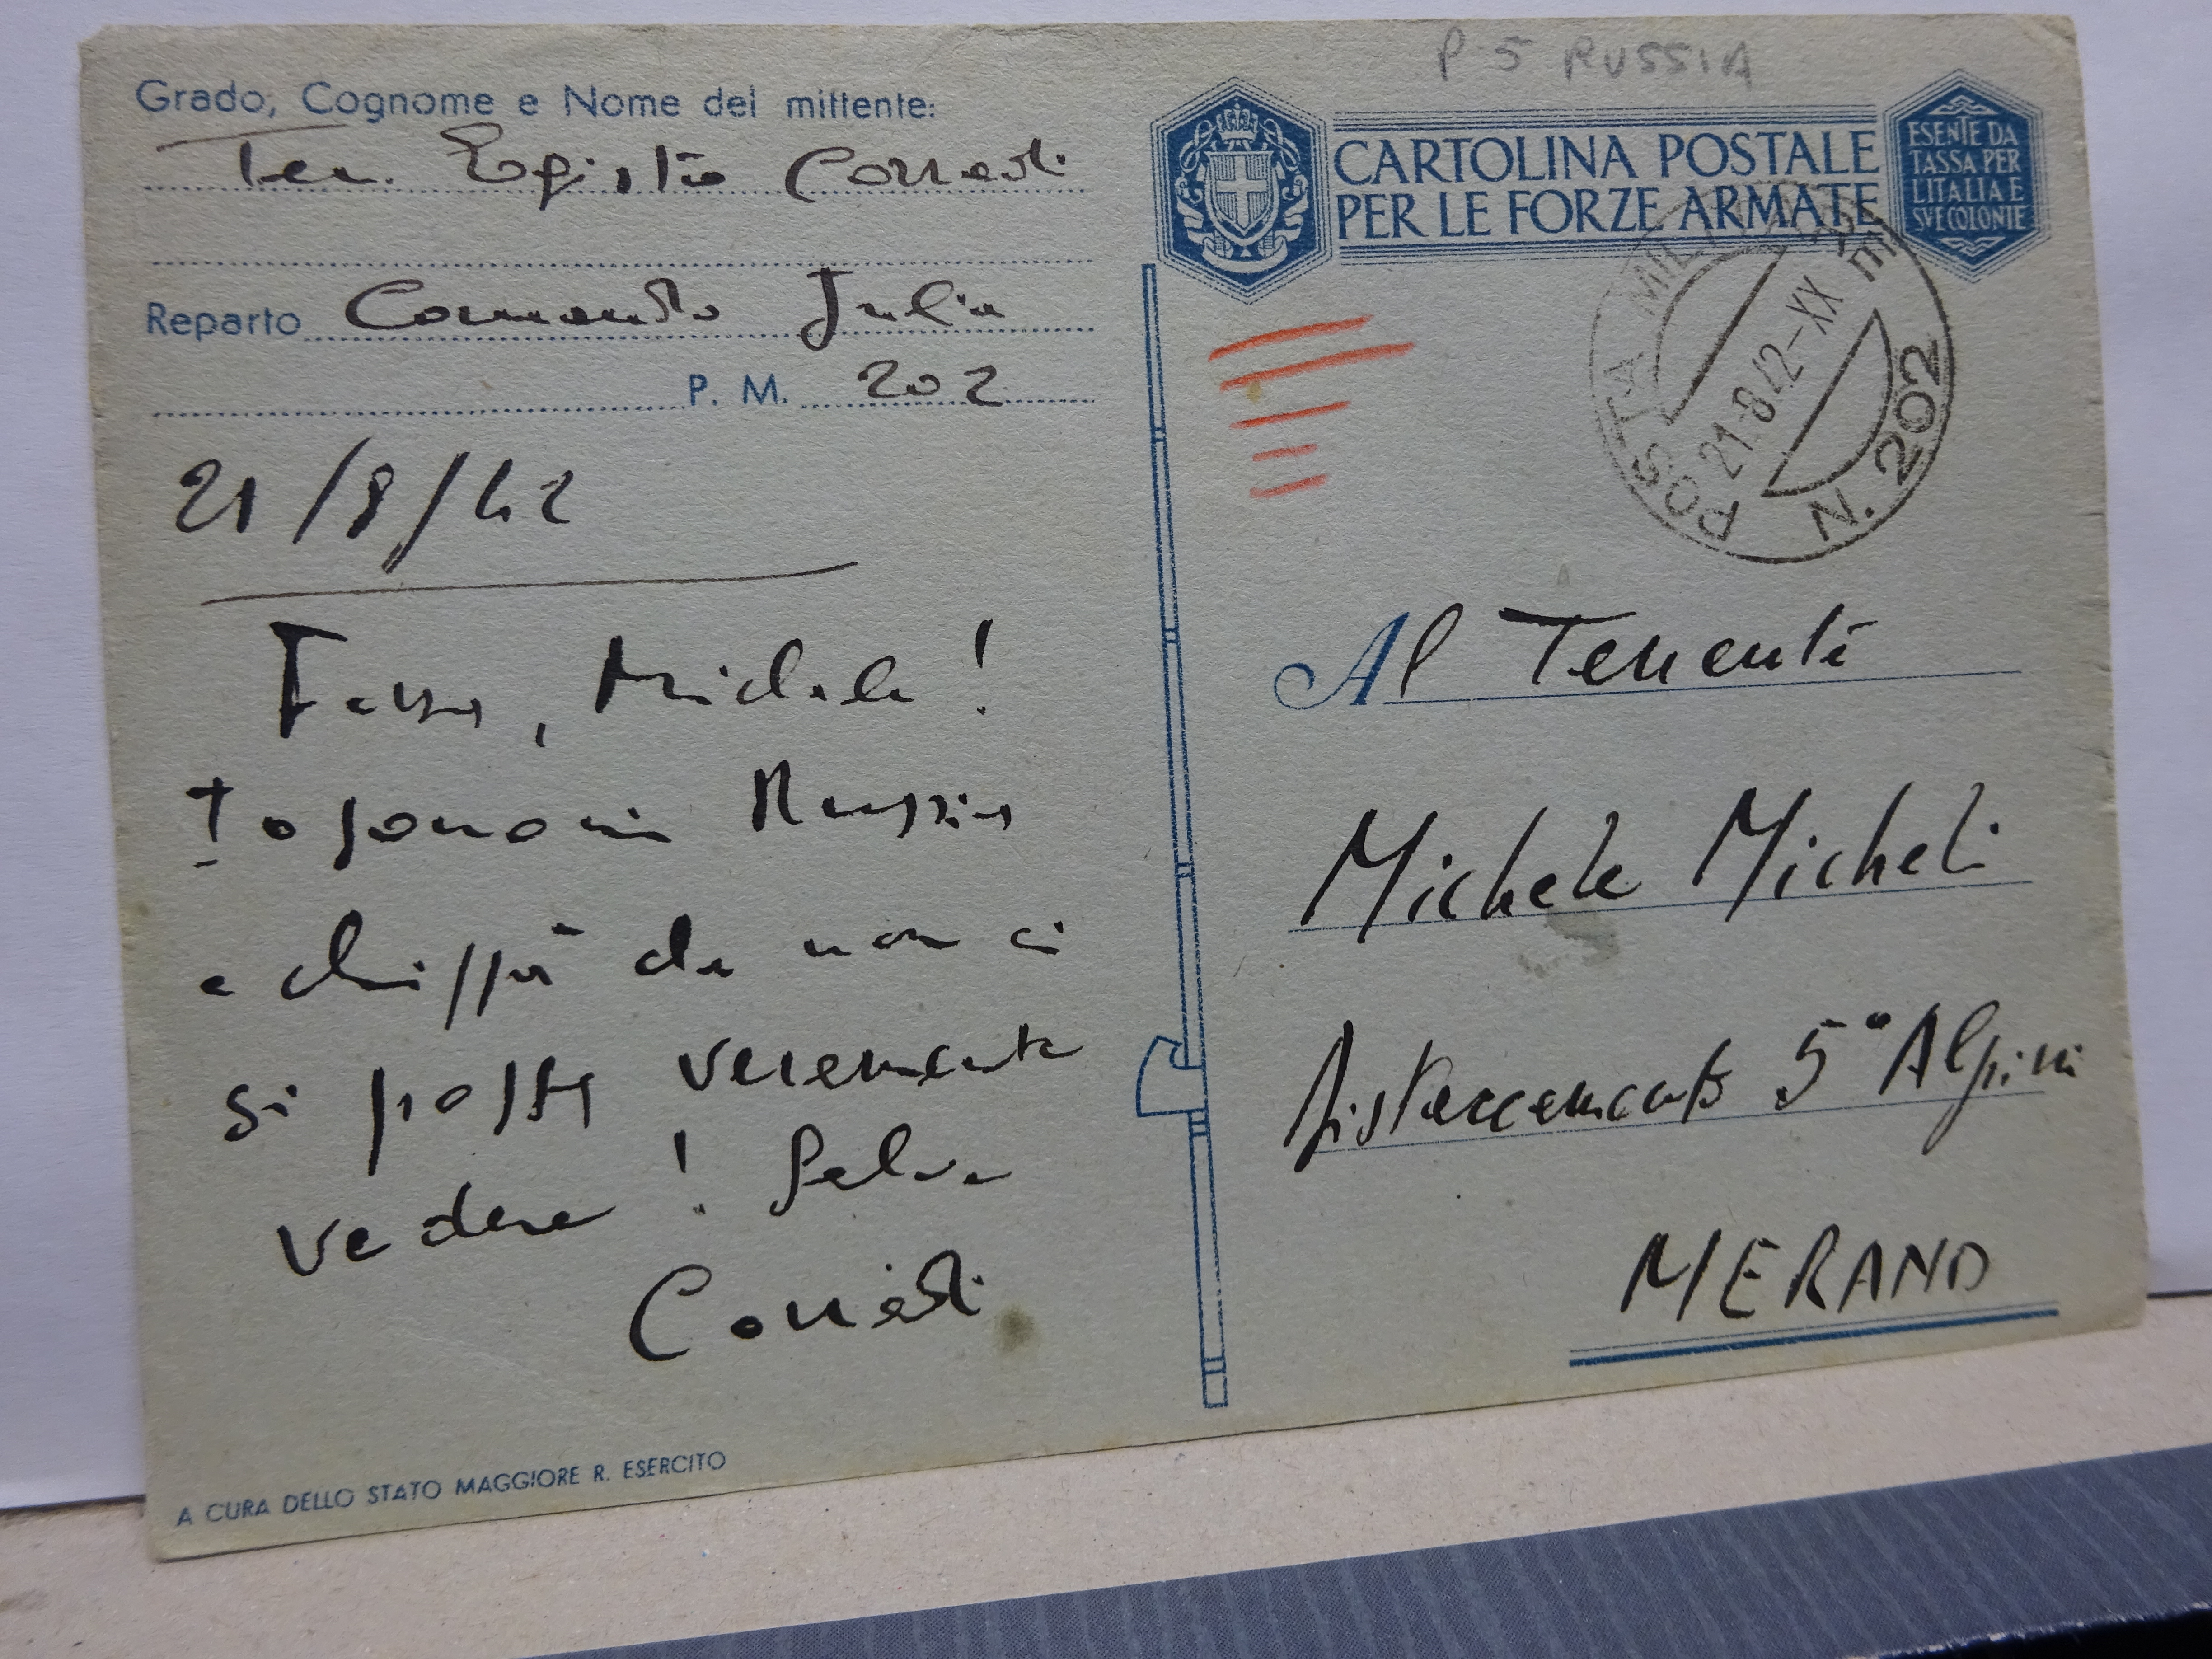 P-5 RUSSIA
Grado, Cognome e Nome del mittente:
Ten. Egisto Corradi
Reparto Comando Julia
P. M. 202
21/8/42
Michele!
Io sono in Russia
e chissà che non ci
si possa veramente
vedere! Salve
Corradi
A CURA DELLO STATO MAGGIORE R. ESERCITO
CARTOLINA POSTALE
PER LE FORZE ARMATE
ESENTE DA
TASSA PER
L'ITALIA E
SVE COLONIE
POSTA MILITARE
21-8-42-XX
N. 202
Al Tenente
Michele Micheli
Distaccamento 5° Alpini
MERANO